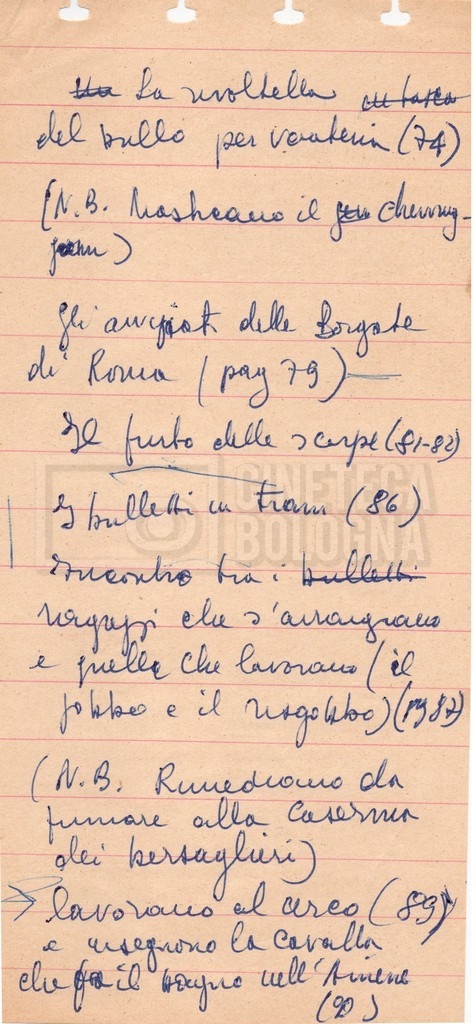 La rivoltella
del bullo per vanteria (74)
(N.B. Masticano il chewing-
gum)
Gli delle Borgate
di Roma (pag 79)
Il furto delle scarpe (81-82)
I bulletti in Tram (86)
Incontro tra i bulletti
ragazzi che s'arrangiano
e quelli che lavorano (il
gobbo e il regobbo) (pg 87)
(N.B. Rimediano da
fumare alla Caserma
dei bersaglieri)
→ lavorano al circo (89)
e la cavalla
che fa il bagno nell'Aniene
(90)
CINETECA
BOLOGNA